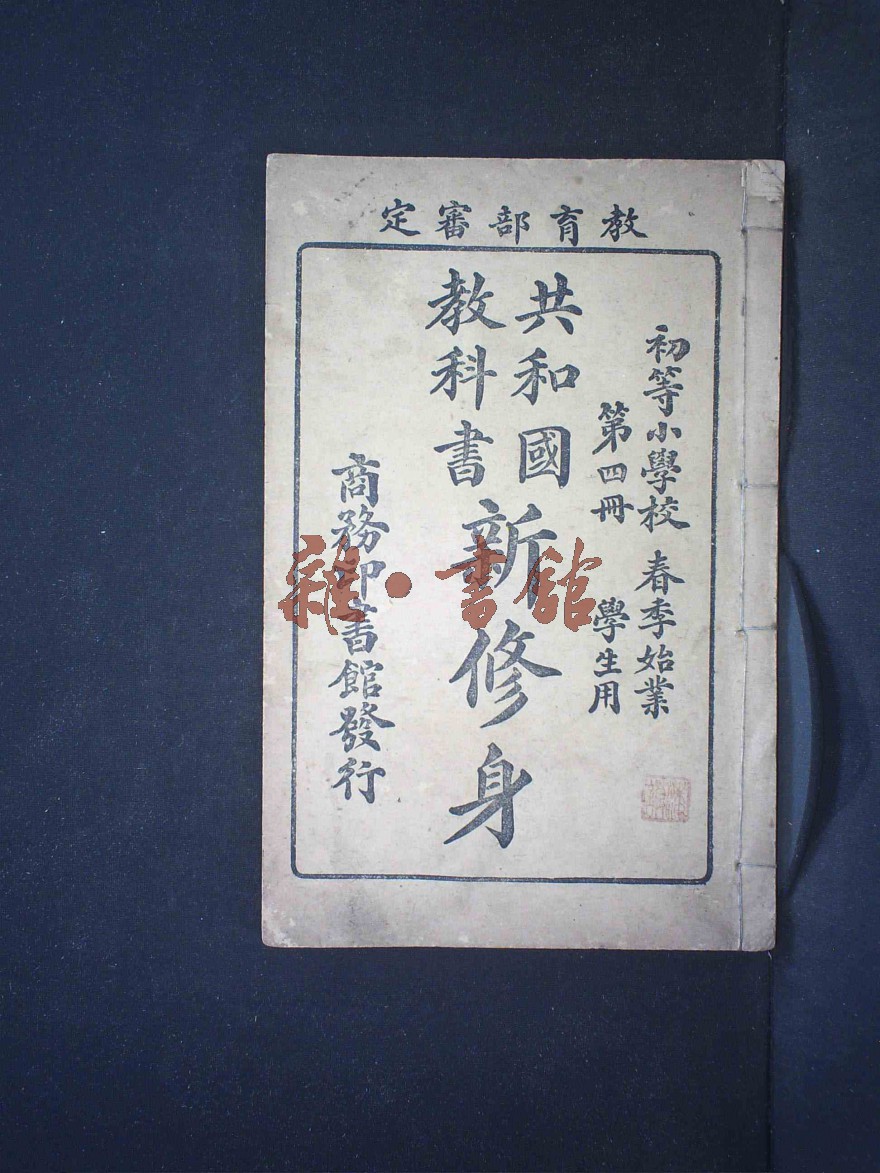 教育部審定
初等小學校 春季始業
第四冊 學生用
共和國
教科書
新修身
商務印書館發行
雜·書館